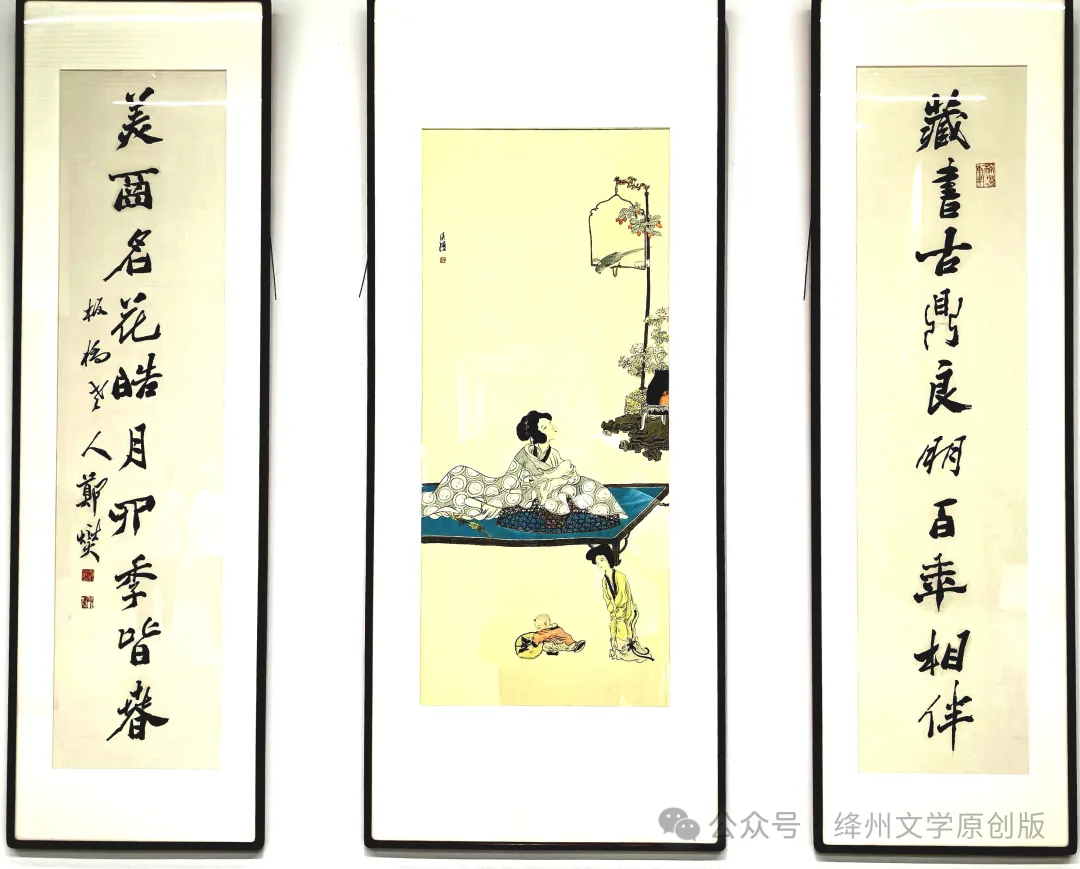 藏書古鼎良朋百年相伴
美酉名花皓月四季皆春
板橋老人鄭燮
公众号 绛州文学原创版